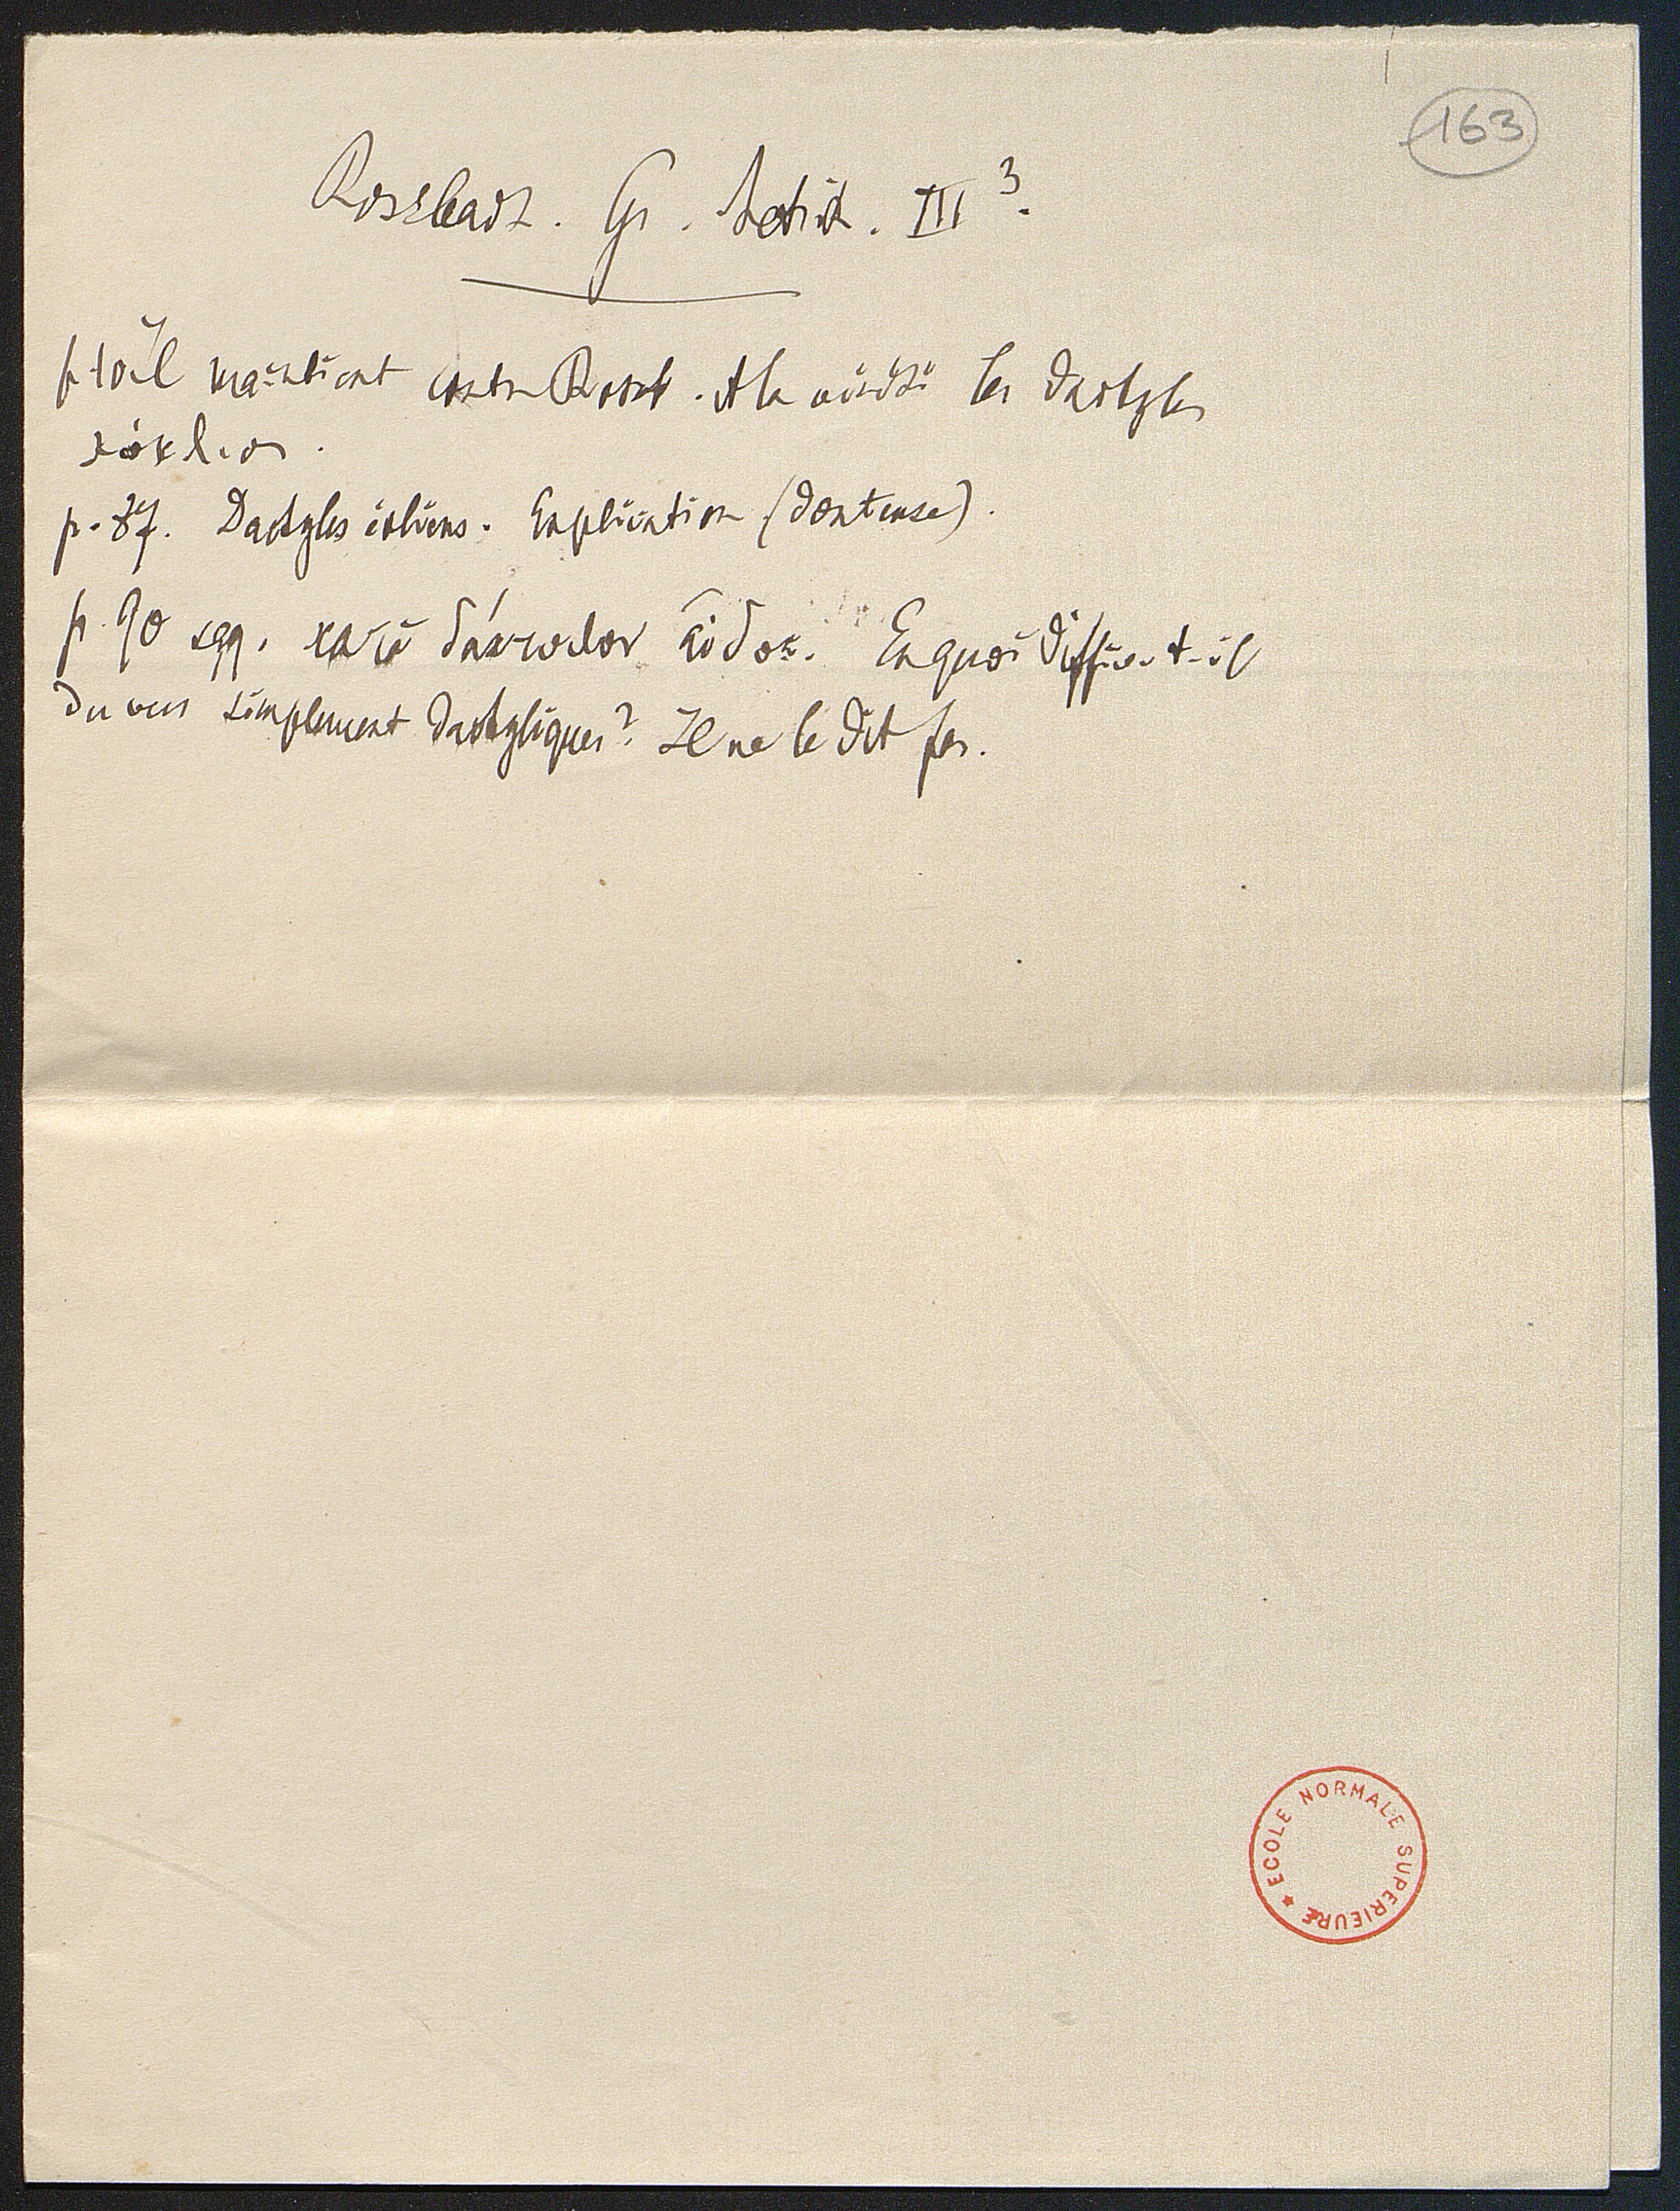 163
Rossbach. Gr. Metrik. III 3.
p. 10 il maintient contre Rossb. et la vérité les dactyles
p. 87. Dactyles éoliens. Explication (douteuse).
p. 90 sqq. κατὰ δάκτυλον εἶδος. En quoi diffère-t-il
du vers simplement dactylique? Il ne le dit pas.
ECOLE NORMALE SUPERIEURE